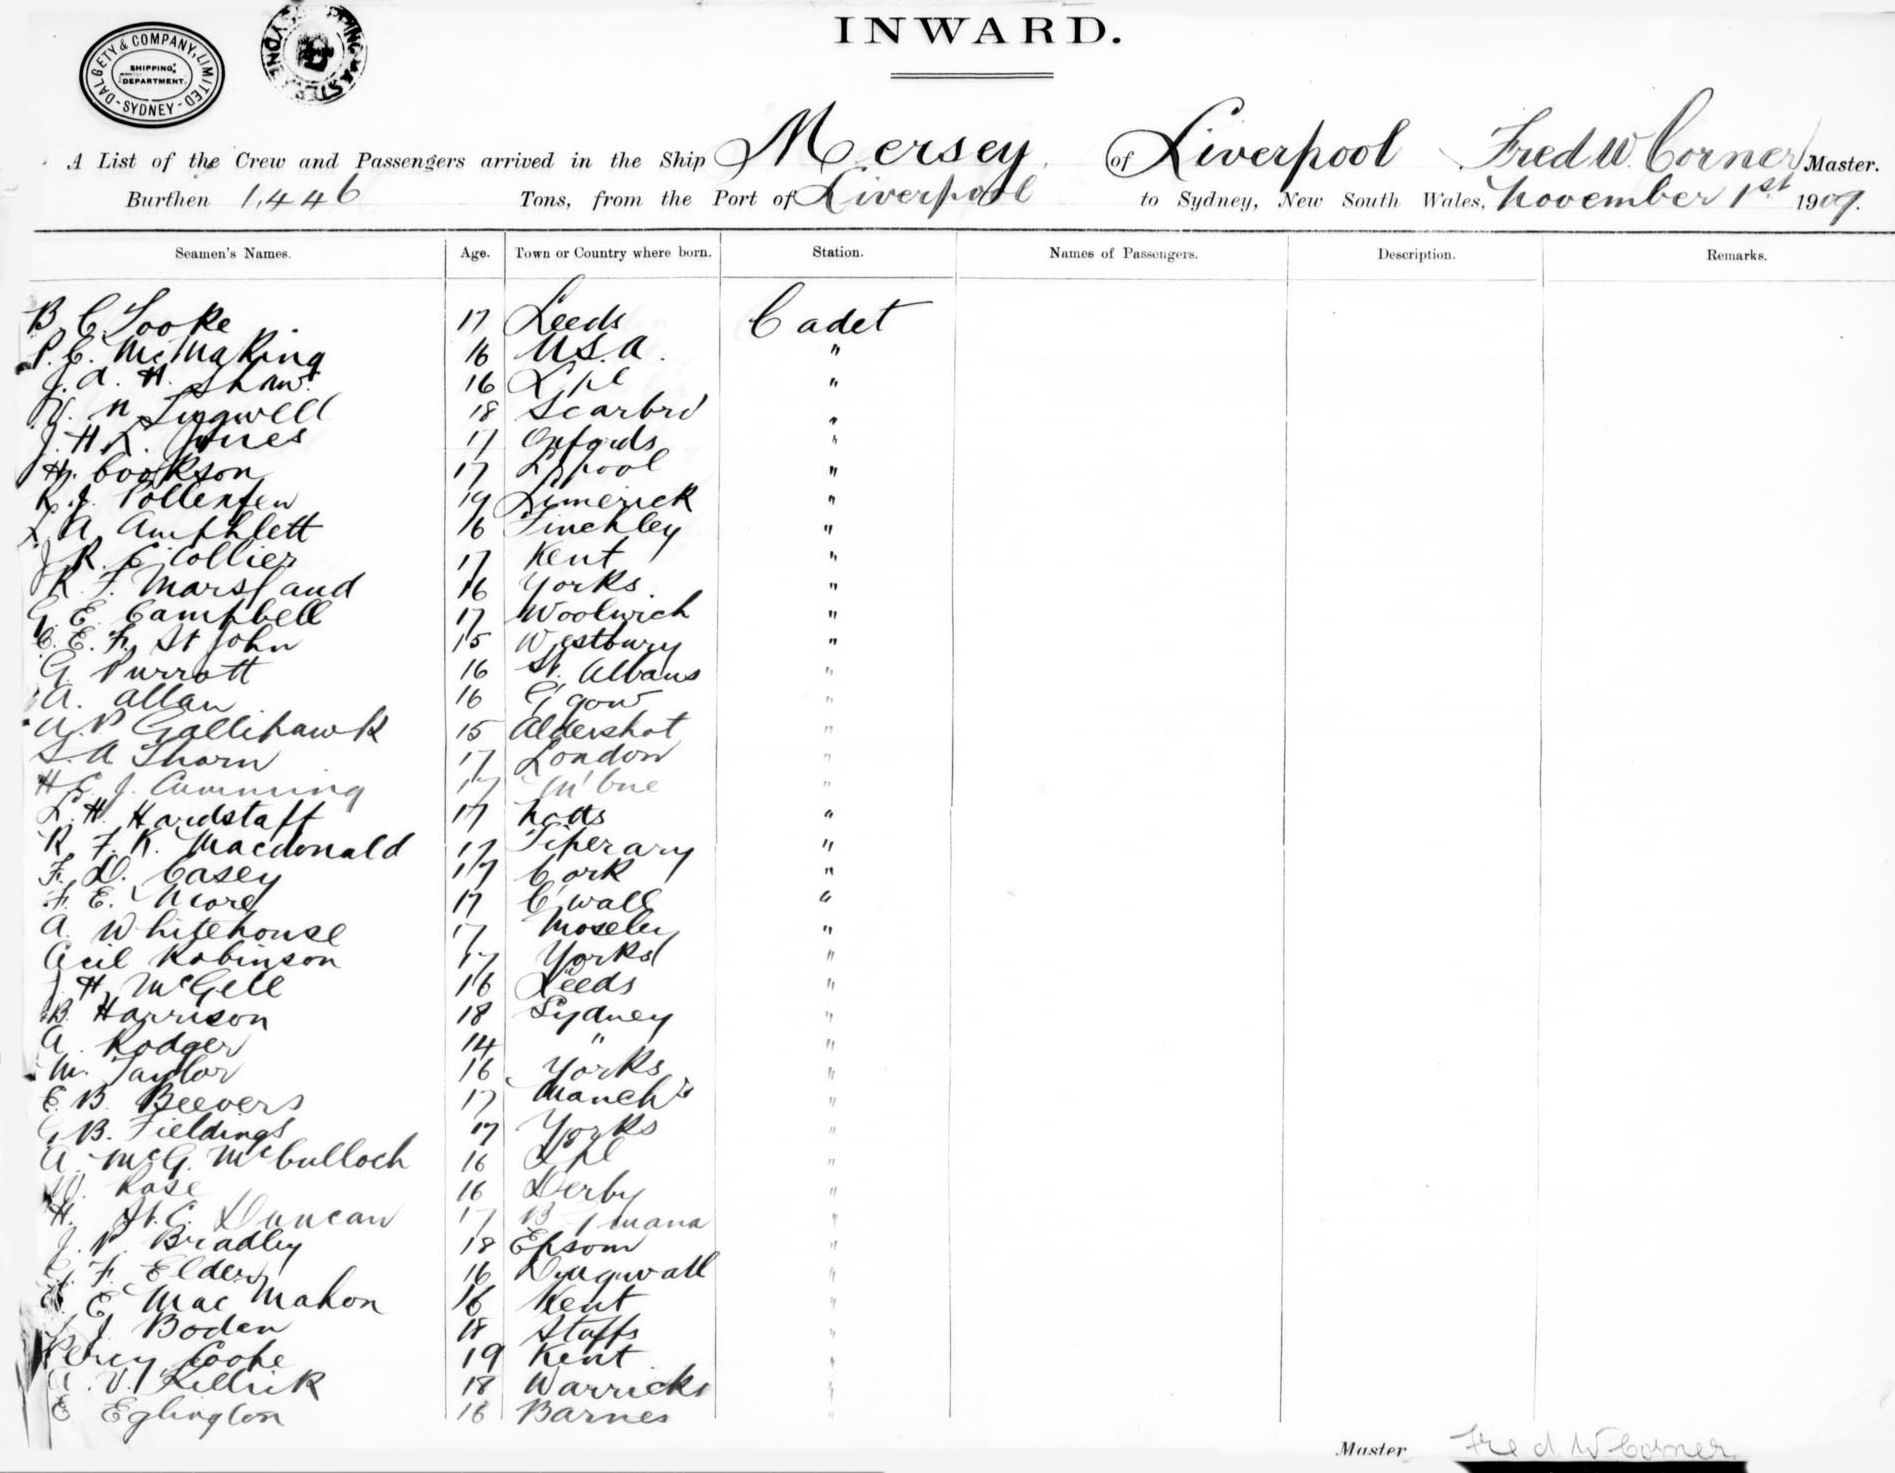 DALGETY & COMPANY, LIMITED
SHIPPING DEPARTMENT.
SYDNEY
INWARD.
A List of the Crew and Passengers arrived in the Ship Mersey of Liverpool Fred W. Corner Master.
Burthen 1,446 Tons, from the Port of Liverpool to Sydney, New South Wales, November 1st 1909.
Seamen's Names. Age. Town or Country where born. Station. Names of Passengers. Description. Remarks.
B C Tooke 17 Leeds Cadet
P. E. McMaking 16 U.S.A. "
J. A. H. Shaw 16 L'pl "
N Tugwell 18 Scarbro' "
J. H. Jones 17 "
H. Cookson 17 L'pool "
R. J. Pollexfen 19 Limerick "
L A Amphlett 16 Finchley "
J R. C Collier 17 Kent "
R F. Marsland 16 Yorks. "
G. E. Campbell 17 Woolwich "
C. E. F. St John 15 Westbury "
G. Purrott 16 St. Albans "
A. Allan 16 G'gow "
P Gallihawk 15 Aldershot "
S. A Thorn 17 London "
H C. J. Cumming 17 M'bne "
L. H. Hardstaff 17 Notts "
R. F. K. Macdonald 17 Tiperary "
F. D. Casey 17 Cork "
F. E. More 17 C'wall "
A. Whitehouse 17 Moseley "
Cecil Robinson 17 Yorks "
J H. McGell 16 Leeds "
B. Harrison 18 Sydney "
A. Rodger 14 " "
M. Taylor 16 Yorks "
E. B. Beevers 17 Manchr "
G B. Fieldings 17 Yorks "
A. McG. McCulloch 16 L'pl "
W. Rose 16 Derby "
H. St. C. Duncan 17 "
J. P. Bradley 18 Epsom "
F. Elder 16 Dingwall "
E Mac Mahon 16 Kent "
J. Boden 18 Staffs "
Percy Cooke 19 Kent "
A. V. Killick 18 Warricks "
E Eglington 16 Barnes "
Master Fred W Corner